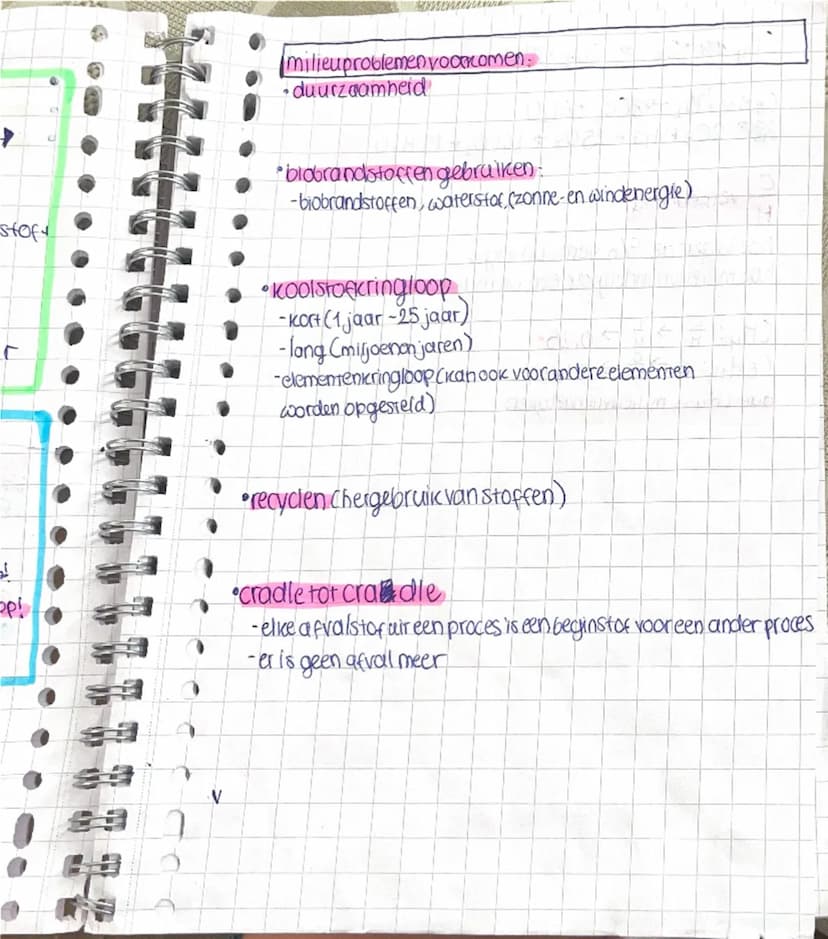 stof
r
op!
milieuproblemen voorkomen:
· duurzaamheid
· biobrandstoffen gebruiken:
- biobrandstoffen, waterstof, (zonne- en windenergie)
· koolstofkringloop
- kort (1 jaar - 25 jaar)
- lang (miljoenen jaren)
- elementenkringloop (kan ook voor andere elementen
worden opgesteld)
· recyclen (hergebruik van stoffen)
· cradle tot cradle
- elke afvalstof uit een proces is een beginstof voor een ander proces
- er is geen afval meer
v